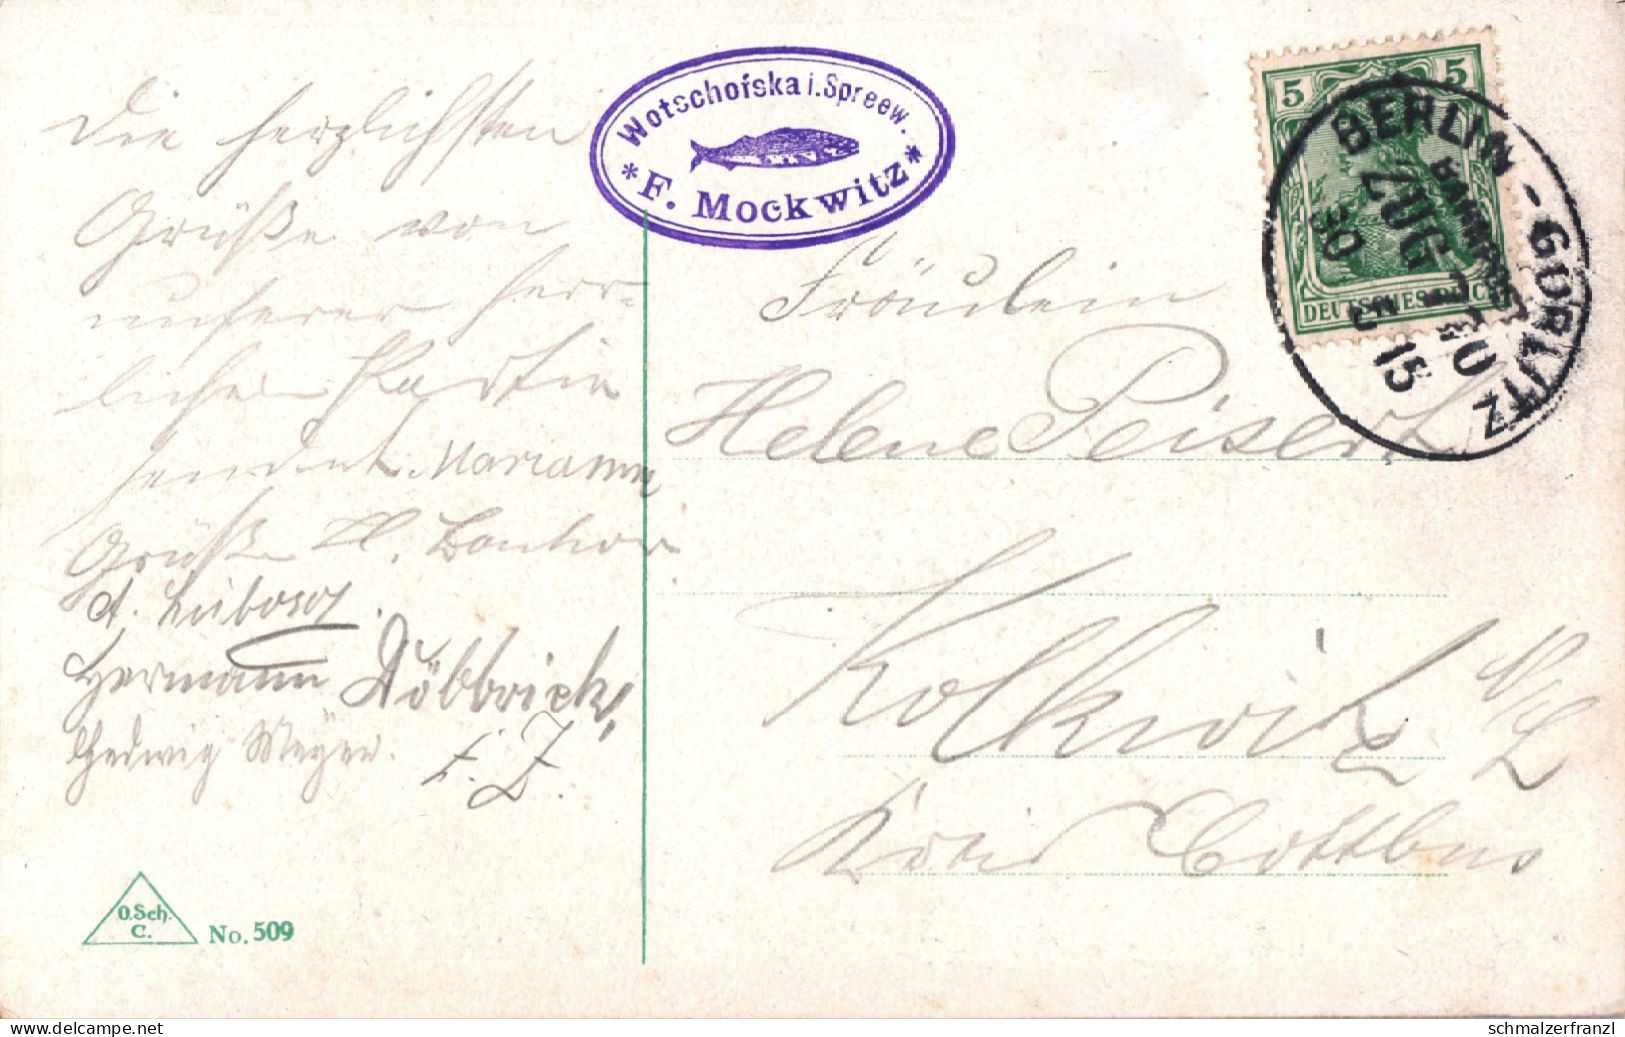 Die herzlichsten
Grüße von
unserer herr-
lichen Partie
sendet Mariann
Grüße
Hermann Döbbrick,
Hedwig Meyer.
Wotschofska i. Spreew.
* F. Mockwitz *
5 5
DEUTSCHES REICH
BERLIN - GÖRLITZ
BAHNPOST
ZUG
30 5 15
Fräulein
Helene Peisert
Kolkwitz N/L
Kreis Cottbus
O.Sch.
C.
No. 509
www.delcampe.net
schmalzerfranzl